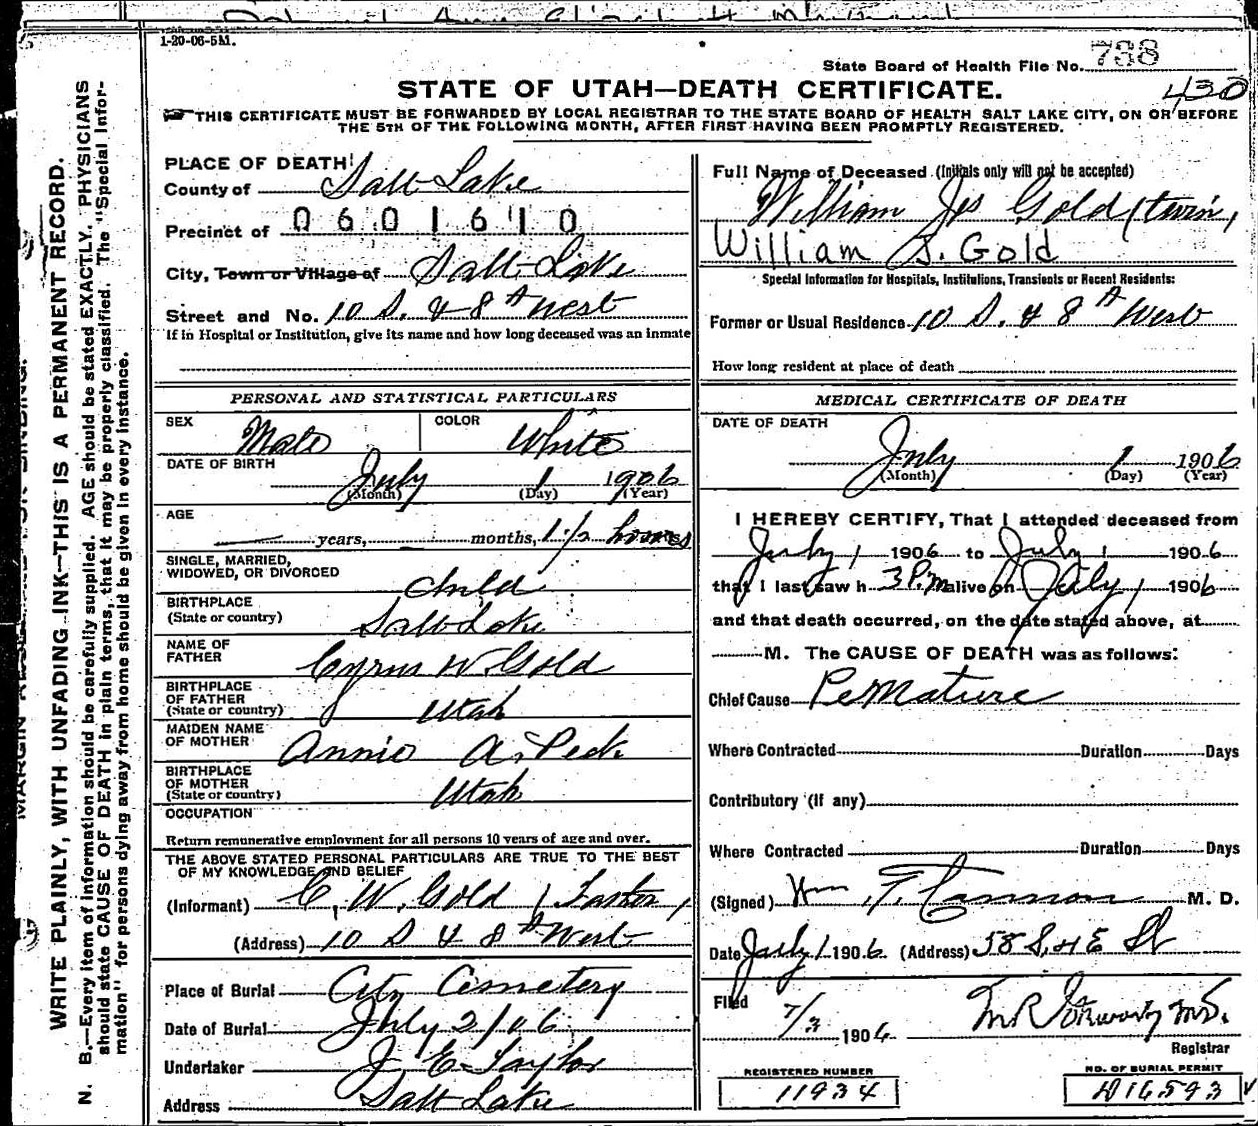 1-20-06-5M.
State Board of Health File No. 738
430
STATE OF UTAH—DEATH CERTIFICATE.
THIS CERTIFICATE MUST BE FORWARDED BY LOCAL REGISTRAR TO THE STATE BOARD OF HEALTH SALT LAKE CITY, ON OR BEFORE
THE 5TH OF THE FOLLOWING MONTH, AFTER FIRST HAVING BEEN PROMPTLY REGISTERED.
PLACE OF DEATH
County of Salt Lake
Precinct of 0601610
City, Town or Village of Salt Lake
Street and No. 10 S. & 8th West
If in Hospital or Institution, give its name and how long deceased was an inmate
PERSONAL AND STATISTICAL PARTICULARS
SEX Male COLOR White
DATE OF BIRTH July 1 1906
(Month) (Day) (Year)
AGE
years, months, 1 1/2 hours
SINGLE, MARRIED,
WIDOWED, OR DIVORCED Child
BIRTHPLACE
(State or country) Salt Lake
NAME OF
FATHER Cyrus W. Gold
BIRTHPLACE
OF FATHER
(State or country) Utah
MAIDEN NAME
OF MOTHER Annie A. Peck
BIRTHPLACE
OF MOTHER
(State or country) Utah
OCCUPATION
Return remunerative employment for all persons 10 years of age and over.
THE ABOVE STATED PERSONAL PARTICULARS ARE TRUE TO THE BEST
OF MY KNOWLEDGE AND BELIEF
(Informant) C. W. Gold
(Address) 10 S & 8th West
Place of Burial City Cemetery
Date of Burial July 2/06
Undertaker J. E. Taylor
Address Salt Lake
Full Name of Deceased (Initials only will not be accepted)
William Jas Gold (twin)
William J. Gold
Special Information for Hospitals, Institutions, Transients or Recent Residents:
Former or Usual Residence 10 S. & 8th West
How long resident at place of death
MEDICAL CERTIFICATE OF DEATH
DATE OF DEATH
July 1 1906
(Month) (Day) (Year)
I HEREBY CERTIFY, That I attended deceased from
July 1 1906 to July 1 1906
that I last saw h 3 P.M alive on July 1 1906
and that death occurred, on the date stated above, at
M. The CAUSE OF DEATH was as follows:
Chief Cause PeMature
Where Contracted Duration Days
Contributory (If any)
Where Contracted Duration Days
(Signed) Wm T. Cannon M. D.
Date July 1 1906. (Address) 58 S. 4 E St
Filed 7/3 1906
Registrar
REGISTERED NUMBER
11934
NO. OF BURIAL PERMIT
D16593
WRITE PLAINLY, WITH UNFADING INK—THIS IS A PERMANENT RECORD.
N. B.—Every item of information should be carefully supplied. AGE should be stated EXACTLY. PHYSICIANS
should state CAUSE OF DEATH in plain terms, that it may be properly classified. The "Special Infor-
mation" for persons dying away from home should be given in every instance.